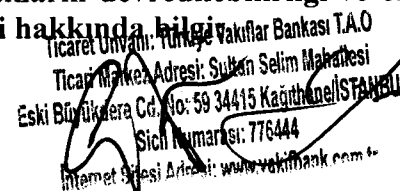 i hakkında bilgi
Ticaret Unvanı: Türkiye Vakıflar Bankası T.A.O
Ticari Merkez Adresi: Sultan Selim Mahallesi
Eski Büyükdere Cd. No: 59 34415 Kağıthane/İSTANBU
Sicil Numarası: 776444
İnternet Sitesi Adresi: www.vakifbank.com.tr